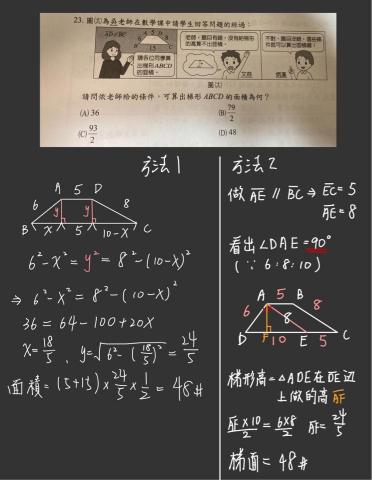 23. 圖(五)為吳老師在數學課中請學生回答問題的經過：
AD∥BC
A 5 D
6 8
B 15 C
請各位同學算出梯形ABCD的面積。
老師，題目有錯，沒有給梯形的高算不出面積。
不對，題目沒錯，這些條件就可以算出面積喔！
圖(五)
請問依老師給的條件，可算出梯形 ABCD 的面積為何？
(A) 36
(B) 79/2
(C) 93/2
(D) 48
方法1
A 5 D
6 y y 8
B x 5 10-x C
6²-x² = y² = 8²-(10-x)²
⇒ 6²-x² = 8²-(10-x)²
36 = 64-100+20x
x = 18/5 , y = √(6²-(18/5)²) = 24/5
面積 = (5+15)× 24/5 × 1/2 = 48 #
方法2
做 AE ∥ BC ⇒ EC = 5
AE = 8
看出 ∠DAE = 90°
(∵ 6:8:10)
A 5 B
6 8 8
D F 10 E 5 C
梯形高 = △ADE在DE边
上做的高 AF
AF×10/2 = 6×8/2 AF = 24/5
梯面 = 48 #